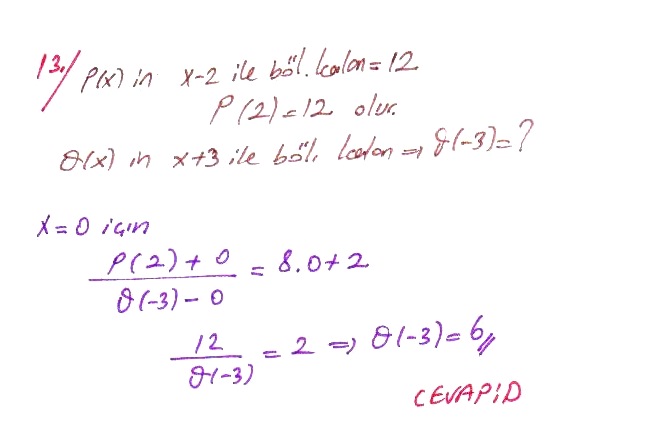 13./ P(x) in x-2 ile böl. kalan = 12
P(2) = 12 olur.
Q(x) in x+3 ile böl. kalan ⇒ Q(-3) = ?
x = 0 için
P(2) + 0 / Q(-3) - 0 = 8.0 + 2
12 / Q(-3) = 2 ⇒ Q(-3) = 6//
CEVAP: D